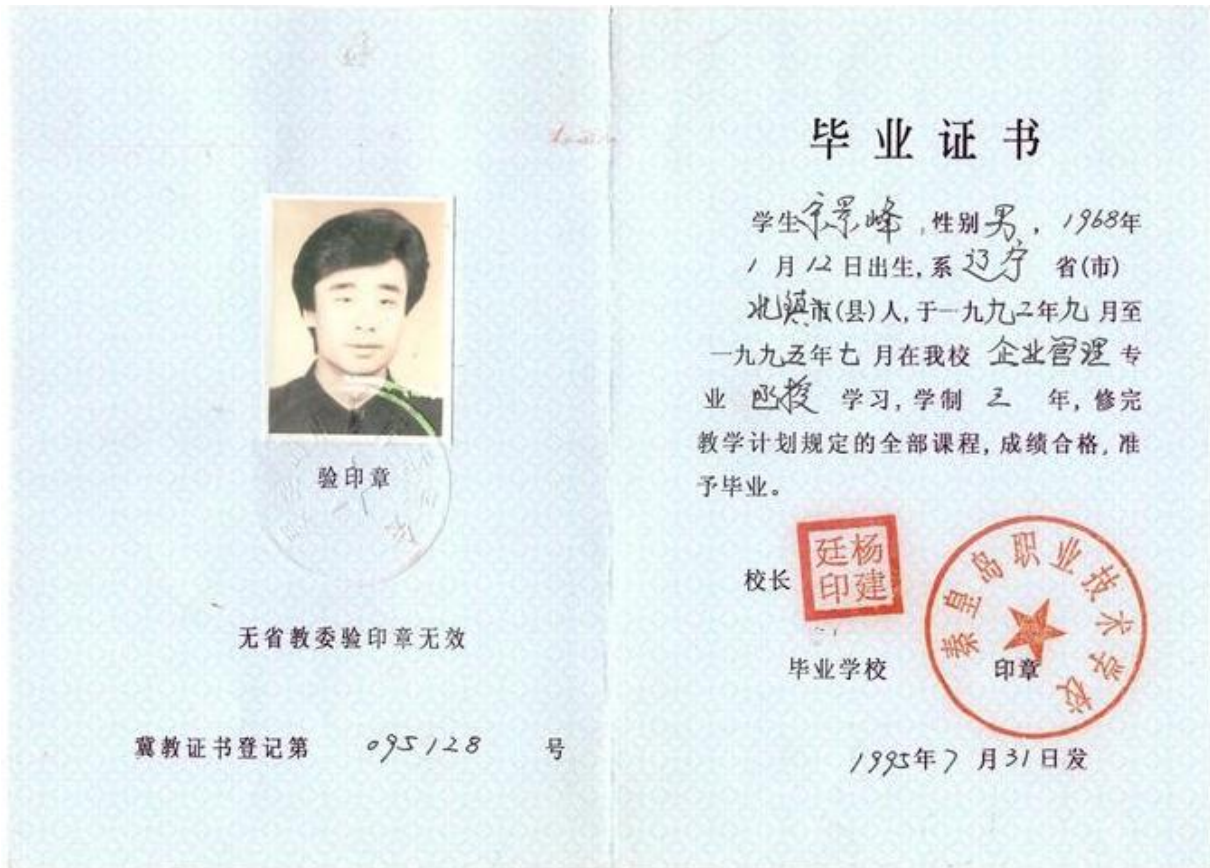 验印章
无省教委验印章无效
冀教证书登记第 095128 号
毕业证书
学生景峰,性别男,1968年
1月12日出生,系辽宁 省(市)
北镇市(县)人,于一九九二年九月至
一九九五年七月在我校 企业管理 专
业 函授 学习,学制 三 年,修完
教学计划规定的全部课程,成绩合格,准
予毕业。
校长
杨建
廷印
秦皇岛职业技术学校
毕业学校 印章
1995年7月31日发